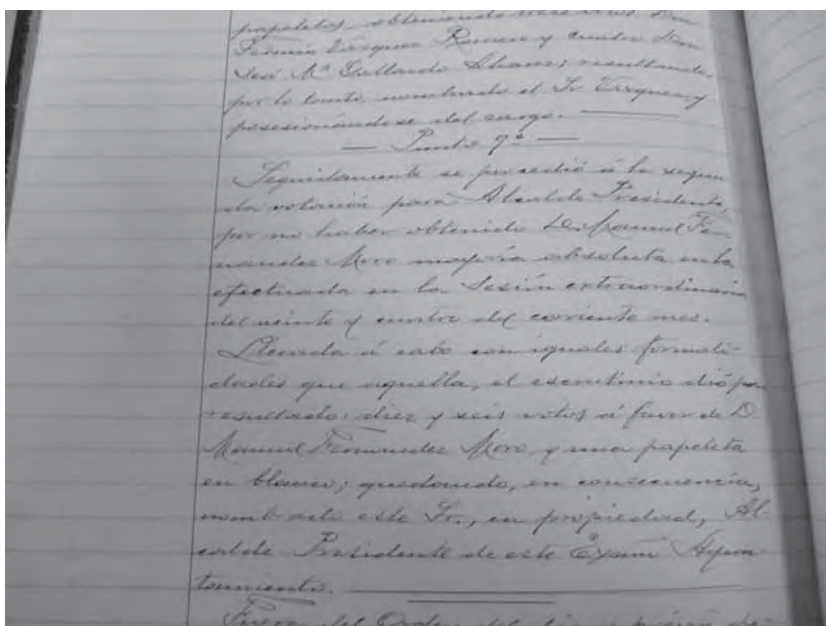 papeletas, obteniendo trece votos Don
Fermín Vázquez Romero y cuatro Don
José Mª Gallardo            ; resultando,
por lo tanto, nombrado el Sr. Vázquez y
posesionándose del cargo.
— Punto 9º —
Seguidamente se procedió á la segun
da votación para Alcalde Presidente,
por no haber obtenido D. Manuel Fer
nandez Moro mayoría absoluta en la
efectuada en la Sesión extraordinaria
del veinte y cuatro del corriente mes.
Llevada á cabo con iguales formali
dades que aquella, el escrutinio dió por
resultado: diez y seis votos á favor de D.
Manuel Fernandez Moro, y una papeleta
en blanco; quedando, en consecuencia,
nombrado este Sr., en propiedad, Al
calde Presidente de este Excmo Ayun
tamiento.
Fuera del Orden del día